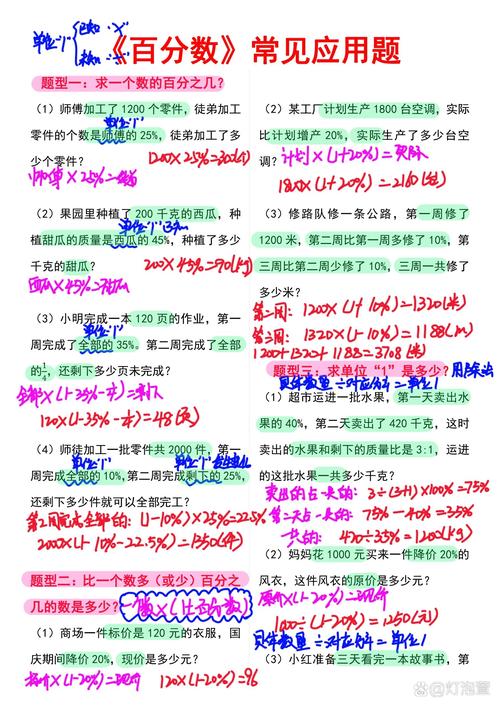 单位"1"
已知 ×
未知 ÷
《百分数》常见应用题
题型一：求一个数的百分之几？
（1）师傅加工了1200个零件，徒弟加工
单位"1"
零件的个数是师傅的25%，徒弟加工了多
少个零件？
1200×25%=300(个)
师傅×25%=徒弟
（2）果园里种植了200千克的西瓜，种
单位"1"已知
植甜瓜的质量是西瓜的45%，种植了多少
千克的甜瓜？
200×45%=90(kg)
西瓜×45%=甜瓜
（3）小明完成一本120页的作业，第一
单位"1"
周完成了全部的35%。第二周完成了全部
的1/4，还剩下多少页未完成？
全部×(1-35%-1/4)=剩下
120×(1-35%-1/4)=48(页)
（4）师徒加工一批零件共2000件，第一
单位"1"
单位"1"发生变化
周完成全部的10%，第二周完成剩下的25%，
还剩下多少件就可以全部完工？
第2周完成全部的：(1-10%)×25%=22.5%
2000×(1-10%-22.5%)=1350(件)
题型二：比一个数多（或少）百分之
几的数是多少？
一个数×(1±百分数)
（1）商场一件标价是120元的衣服，国
庆期间降价20%，现价是多少元？
标价×(1-20%)=现价
120×(1-20%)=96
（2）某工厂计划生产1800台空调，实际
单位"1"
比计划增产20%，实际生产了多少台空
调？
计划×(1+20%)=实际
1800×(1+20%)=2160(台)
（3）修路队修一条公路，第一周修了
1200米，第二周比第一周多修了10%，第
三周比第二周少修了10%，三周一共修了
多少米？
第二周：1200×(1+10%)=1320(米)
第三周：1320×(1-10%)=1188(m)
1200+1320+1188=3708(米)
题型三：求单位"1"是多少？
用除法
具体数量÷对应分率=单位1
（1）超市运进一批水果，第一天卖出水
果的40%，第二天卖出了420千克，这时
卖出的水果和剩下的质量比是3:1，运进
的这批水果一共多少千克？
卖出的占一共的：3÷(3+1)×100%=75%
第二天占一共的：75%-40%=35%
一共的：420÷35%=1200(kg)
（2）妈妈花1000元买来一件降价20%的
风衣，这件风衣的原价是多少元？
原价×(1-20%)=现价
1000÷(1-20%)=1250(元)
具体数量÷对应分率=单位1
（3）小红准备三天看完一本故事书，第
@灯泡萱